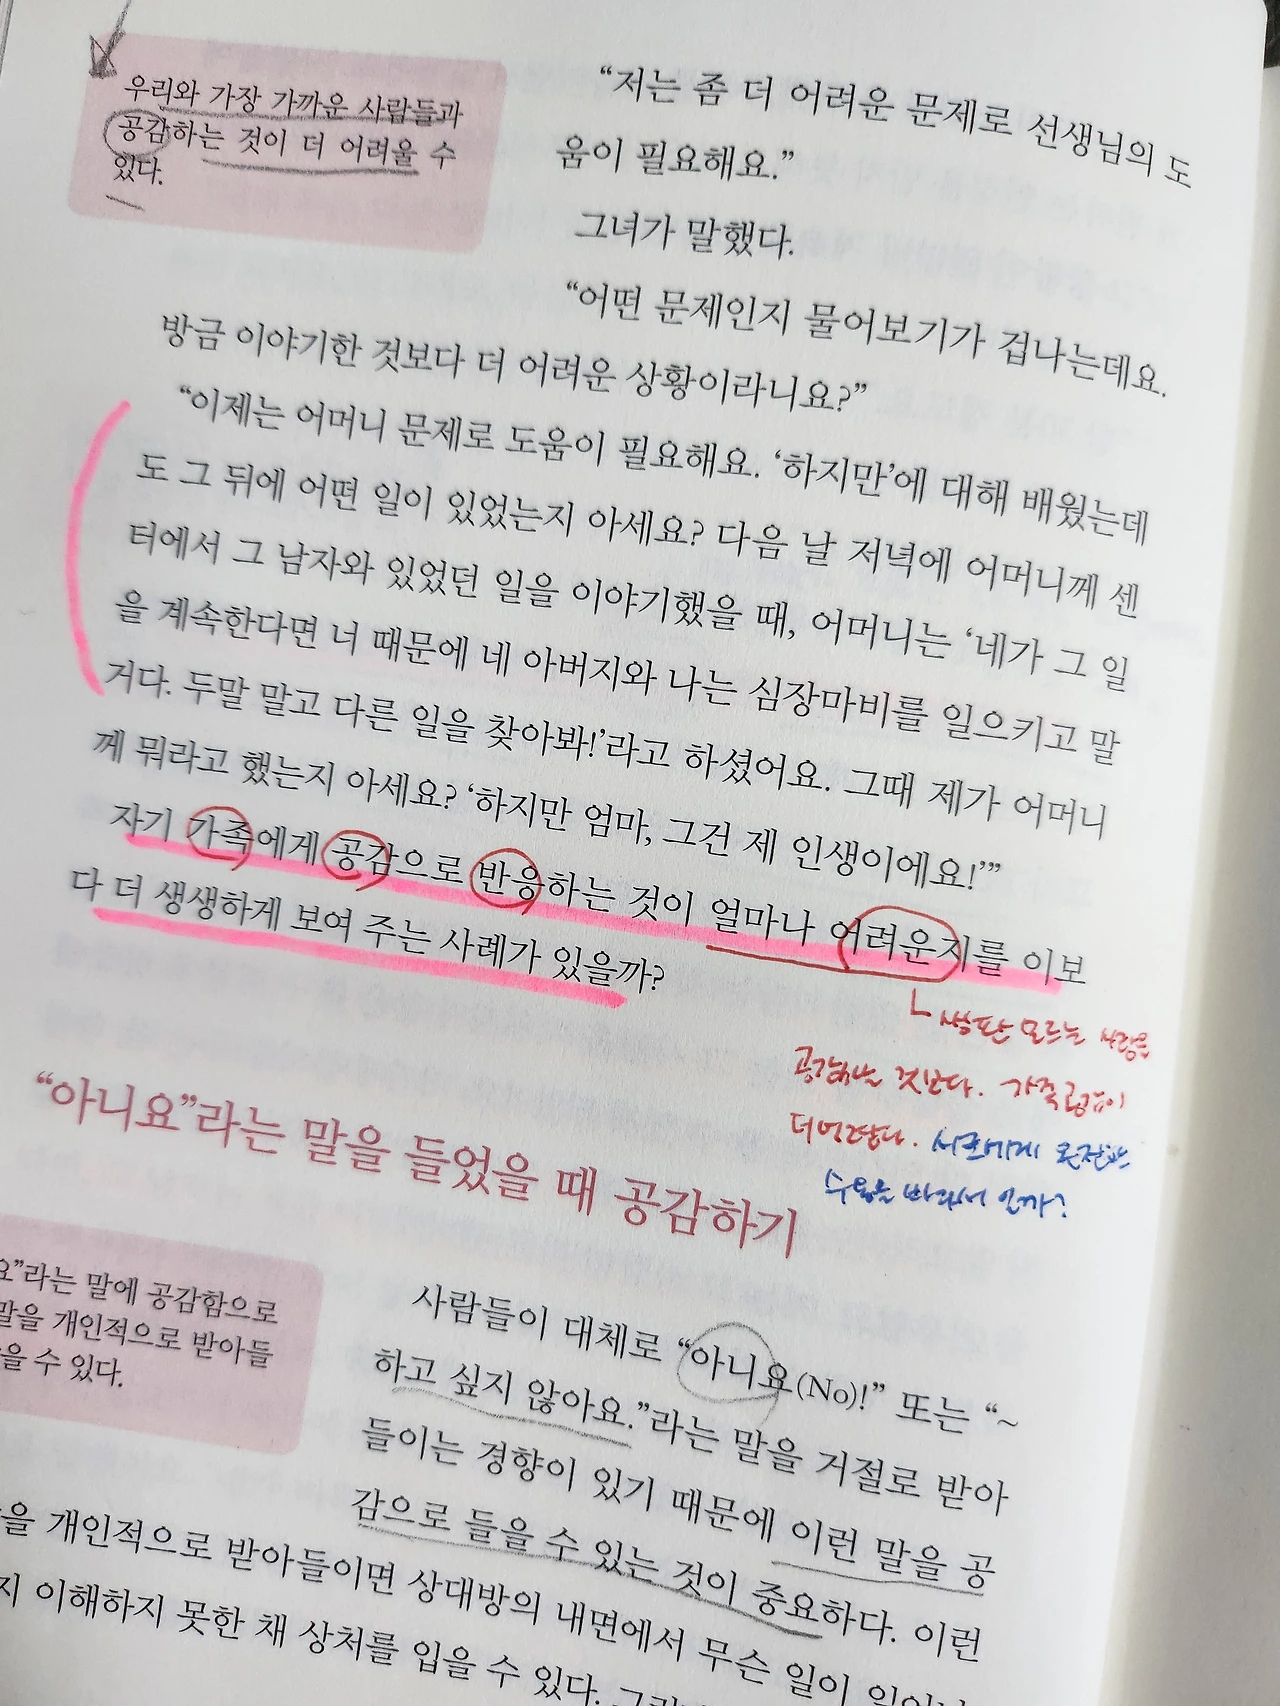 우리와 가장 가까운 사람들과
공감하는 것이 더 어려울 수
있다.
“저는 좀 더 어려운 문제로 선생님의 도
움이 필요해요.”
그녀가 말했다.
“어떤 문제인지 물어보기가 겁나는데요.
방금 이야기한 것보다 더 어려운 상황이라니요?”
“이제는 어머니 문제로 도움이 필요해요. ‘하지만’에 대해 배웠는데
도 그 뒤에 어떤 일이 있었는지 아세요? 다음 날 저녁에 어머니께 센
터에서 그 남자와 있었던 일을 이야기했을 때, 어머니는 ‘네가 그 일
을 계속한다면 너 때문에 네 아버지와 나는 심장마비를 일으키고 말
거다. 두말 말고 다른 일을 찾아봐!’라고 하셨어요. 그때 제가 어머니
께 뭐라고 했는지 아세요? ‘하지만 엄마, 그건 제 인생이에요!’”
자기 가족에게 공감으로 반응하는 것이 얼마나 어려운지를 이보
다 더 생생하게 보여 주는 사례가 있을까?
생판 모르는 사람을
공감하는 것보다. 가족공감이
더 어렵다. 서로에게 온전한
수용을 바라서 일까?
“아니요”라는 말을 들었을 때 공감하기
요”라는 말에 공감함으로
말을 개인적으로 받아들
을 수 있다.
사람들이 대체로 “아니요(No)!” 또는 “~
하고 싶지 않아요.”라는 말을 거절로 받아
들이는 경향이 있기 때문에 이런 말을 공
감으로 들을 수 있는 것이 중요하다. 이런
을 개인적으로 받아들이면 상대방의 내면에서 무슨 일이
지 이해하지 못한 채 상처를 입을 수 있다.